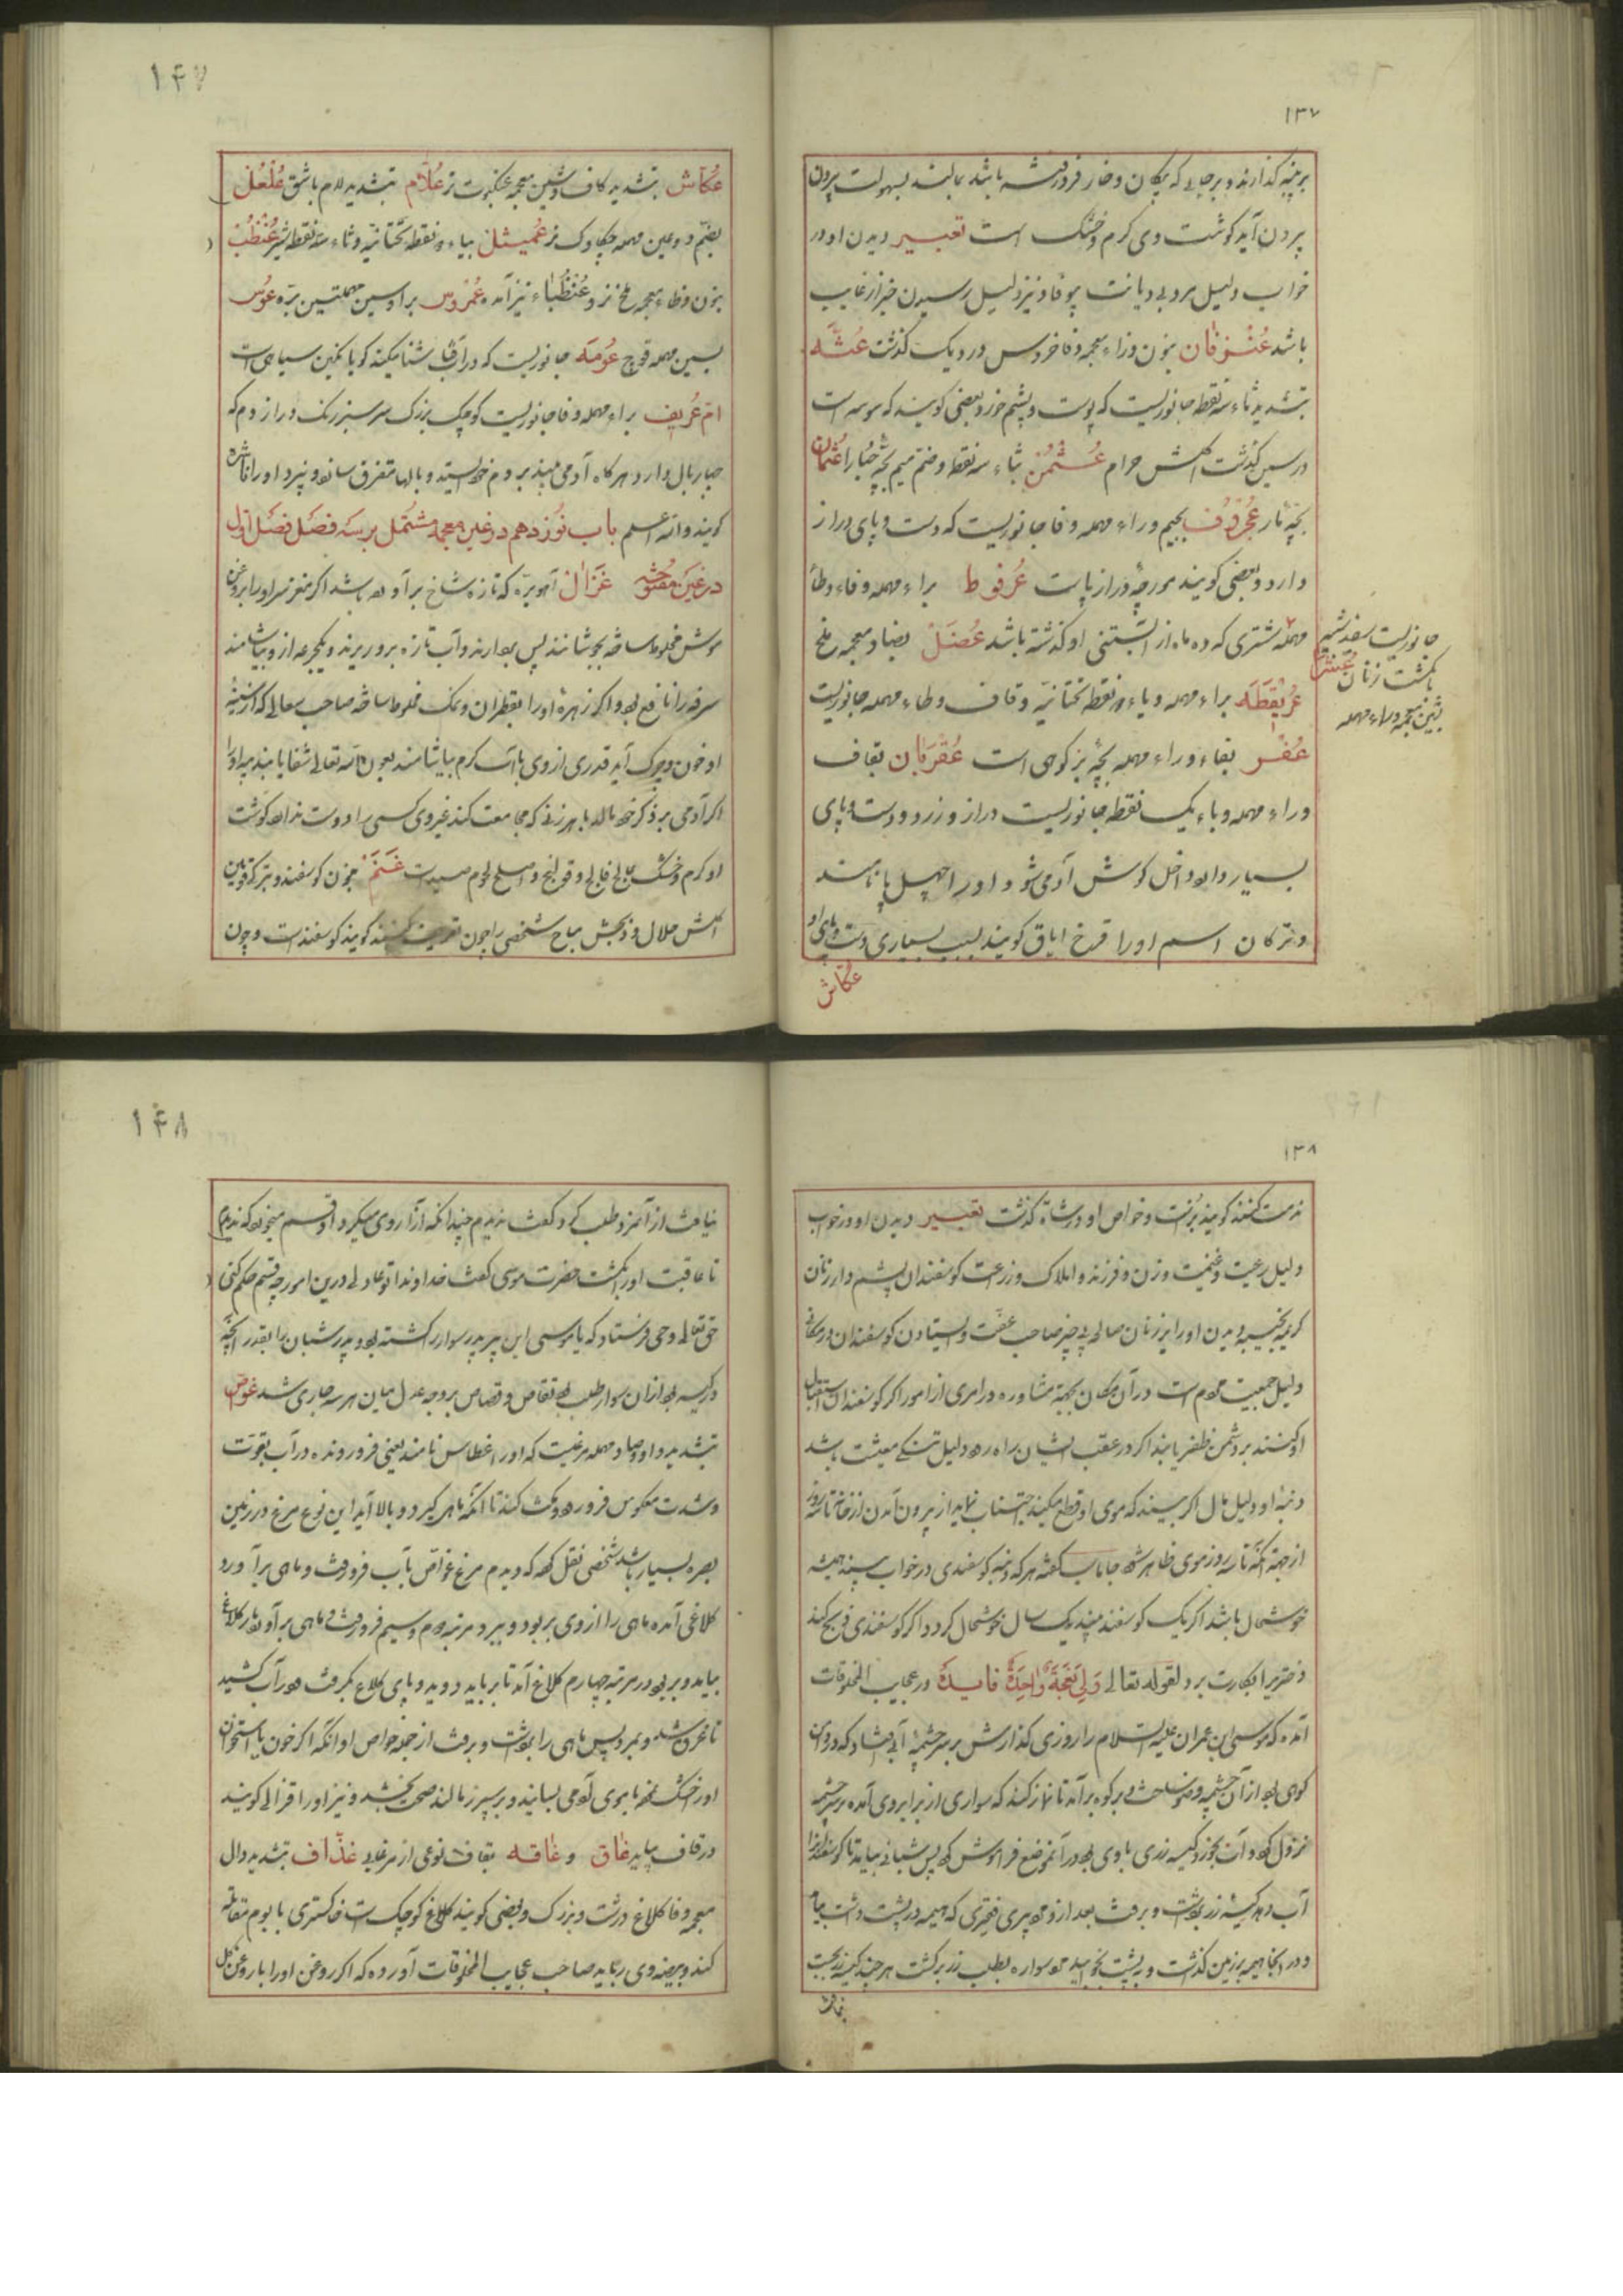 ۱۳۷
بر پنبه گذارند و بر جایی که پیکان و خار فرو رفته باشد بمالند بسهولت بیرون
بیرون آید گوشت وی گرم و خشک است تعبیر دیدن او در
خواب دلیل مرد بی دیانت بیوفا و نیز دلیل رسیدن خبر از غایب
باشد عُنْزفان بنون و زاء معجمه و فا خروس و در دیک گذشت عثّه
بتشدید ثاء سه نقطه جانوریست که پوست و پشم خورد و بعضی گویند که سوس است
در سین گذشت اکلش حرام عُثمُن بثاء سه نقطه و ضم میم بچّه حُبارا عُثمان
بچّه مار عُجْرُوف بجیم و راء مهمله و فا جانوریست که دست و پای دراز
دارد و بعضی گویند مورچه دراز پاست عُرفوط براء مهمله و فاء و طاء
مهمله شتری که ده ماه از آبستنی او گذشته باشد عُضَل بضاد معجمه ملخ
عُرَیْقِطَه براء مهمله و یاء دو نقطه تحتانیّه و قاف و طاء مهمله جانوریست
عُفْر بفاء و راء مهمله بچّه بز کوهی است عُقرَبان بقاف
و راء مهمله و باء یک نقطه جانوریست دراز و زرد و دست و پای
بسیار دارد داخل گوش آدمی شود او را چهل پا نامند
و ترکان اسم او را قرخ ایاق گویند بسبب بسیاری دست و پای او
عکّاش
جانوریست سفید شبیه
بانگشت زنان عُشَرا
بشین معجمه و راء مهمله
۱۴۷
عُکّاش بتشدید کاف و شین معجمه عنکبوت نر عُلّام بتشدید لام باشق عُلْعُل
بضمّ دو عین مهمله چکاوک نر عُمیثل بیاء دو نقطه تحتانیّه و ثاء سه نقطه شیر عُنْظُب
بنون و ظاء معجمه ملخ نر و عُنْظُباء نیز آمده عُمْرُوس براء و سین مهملتین برّه عُوس
بسین مهمله قوچ عُومَه جانوریست که در آب شنا میکند گویا نگین سیاهی است
امّ عُریف براء مهمله و فا جانوریست کوچک بزرگ سر سبز رنگ دراز دم که
چهار بال دارد هرگاه آدمی بیند بر دم خود ایستد و بالها متفرق سازد و نپرد او را ناشره
گویند والله اعلم باب نوزدهم در غین معجمه مشتمل بر سه فصل فصل اول
در غین مفتوحه غَزال آهو برّه که تازه شاخ بر آورده باشد اگر مغز سر او را بروغن
موش مخلوط ساخته بجوشانند پس بردارند و آب تازه برو ریزند و یکجرعه از و بیاشامند
سرفه را نافع بود و اگر زهرهٔ او را بقطران و نمک مخلوط ساخته صاحب سعالی که از سینهٔ
او خون و چرک آید قدری از وی با آب گرم بیاشامد بعون الله تعالی شفا یابد پیه او را
اگر آدمی بر ذکر خود مالد با هر زنی که مجامعت کند غیر وی کسی را دوست ندارد گوشت
او گرم و خشک علاج فالج و قولنج و اصلح لحوم صید است غَنَم بنون گوسفند و بترکی قوین
اکلش حلال و ذبحش مباح شخصی را چون تعریف کنند گویند گوسفند است و چون
۱۳۸
مذمت کنند گویند بُز است و خواص او در شاة گذشت تعبیر دیدن او در خواب
دلیل رعیت و غنیمت و زن و فرزند و املاک و زراعت گوسفندان پشم دار زنان
کریمه نجیبه دیدن او را نیز زنان صالحه بی چیز صاحب عفّت و ایستادن گوسفندان در مکانی
دلیل جمعیت مردم است در آن مکان بجهة مشاوره در امری از امور اگر گوسفندان استقبال
او کنند بر دشمن ظفر یابد اگر در عقب ایشان براه رود دلیل تنگی معیشت باشد
دنبهٔ او دلیل مال اگر بیند که موی او قطع میکند اجتناب نماید از بیرون آمدن از خانه تا سه روز
از جهة آنکه تا سه روز موی ظاهر شود جاماسب گفته هر که دنبه گوسفندی در خواب بیند همیشه
خوشحال باشد اگر یک گوسفند بیند یک سال خوشحال گردد اگر گوسفندی ذبح کند
دختریرا بکارت برد لقوله تعالی وَلِیَ نَعْجَةٌ وَاحِدَةٌ فایده در عجایب المخلوقات
آمده که موسی ابن عمران علیه السلام را روزی گذارش بر سر چشمهٔ آبی افتاد که در دامن
کوهی بود از آن چشمه وضو ساخت و بر کوه برآمد تا نماز کند که سواری از برابر وی آمده بر سر چشمه
نزول کرد و آب بخورد کیسه زری با وی بود در آنموضع فراموش کرد پس شبانی بیامد تا گوسفندانرا
آب دهد کیسهٔ زر برداشت و برفت بعد از و پیری فقیری که هیمه در پشت داشت بیامد
و در آنجا هیمه بر زمین گذاشت و به پشت بخوابید سواره بطلب زر برگشت هرچند کیسه زر بجست
نیافت
۱۴۸
نیافت از آنمرد طلب کرد گفت ندیدم چندانکه آزار وی میکرد او قسم میخورد که ندیدم
تا عاقبت او را بکشت حضرت موسی گفت خداوندا تو عادلی درین امور چه قسم حکم کنی
حق تعالی وحی فرستاد که یا موسی این پیر پدر سوار را کشته بود و پدر شبان را بقدر آنچه
در کیسه بود از ان سوار طلب بود تقاص و قصاص بر وجه عدل میان هر سه جاری شد غوّاص
بتشدید واو و صاد مهمله مرغیست که او را غطاس نامند یعنی فرو رونده در آب بقوّت
و شدت معکوس فرو رود و مکث کند تا آنکه ماهی گیرد و بالا آید این نوع مرغ در زمین
بصره بسیار باشد شخصی نقل کرد که دیدم مرغ غوّاص بآب فرو رفت و ماهی برآورد
کلاغی آمده ماهی را از وی بربود و ببرد مرتبه دوم و سیم فرو رفت و ماهی برآورد باز کلاغ
بیامد و بربود در مرتبه چهارم کلاغ آمد تا برباید دوید و پای کلاغ بگرفت و در آب کشید
تا غرق شد و بمرد پس ماهی را برداشت و برفت از جمله خواص او آنکه اگر خون یا استخوان
او را خشک نموده با موی آدمی بسایند و بر سپرز مالند صحت بخشد و نیز او را قزالی گویند
در قاف بیاید غاق و غاقه بقاف نوعی از مرغابی غذّاف بتشدید دال
معجمه و فا کلاغ درشت و بزرگ و بعضی گویند کلاغ کوچک است خاکستری با بوم مقاتله
کند و بیضه وی رباید صاحب عجایب المخلوقات آورده که اگر روغن او را با روغن گل